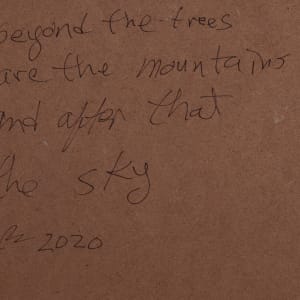 beyond the trees
are the mountains
and after that
the sky
2020